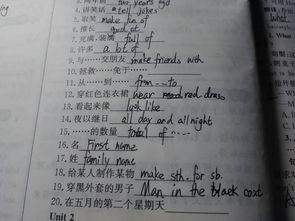 3.两年前 two years ago
4.讲笑话 tell jokes
5.取笑 make fun of
6.擅长 good at
7.充满,装满 full of
8.许多 a lot of
9.与……交朋友 make friends with
10.拯救……免于……
11.从……到…… from …… to
12.穿红色连衣裙 wear red dress
13.看起来像 look like
14.夜以继日 all day and all night
15.……的数量 total of ……
16.名 First name
17.姓 family name
18.给某人制作某物 make sth. for sb.
19.穿黑外套的男子 Man in the black coat
20.在五月的第二个星期天
Unit 2
What